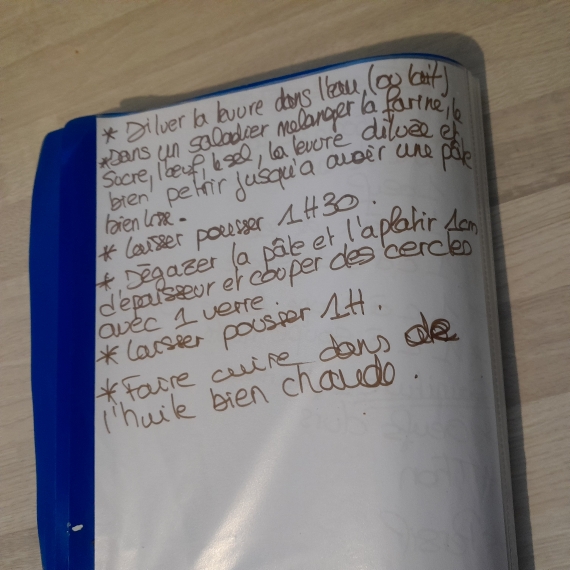 * Diluer la levure dans l'eau (ou lait)
*Dans un saladier mélanger la farine, le
sucre, l'œuf, le sel, la levure diluée et
bien pétrir jusqu'à avoir une pâte
bien lisse.
* Laisser pousser 1H30.
* Dégazer la pâte et l'aplatir 1cm
d'épaisseur et couper des cercles
avec 1 verre.
* Laisser pousser 1H.
* Faire cuire dans de
l'huile bien chaude.